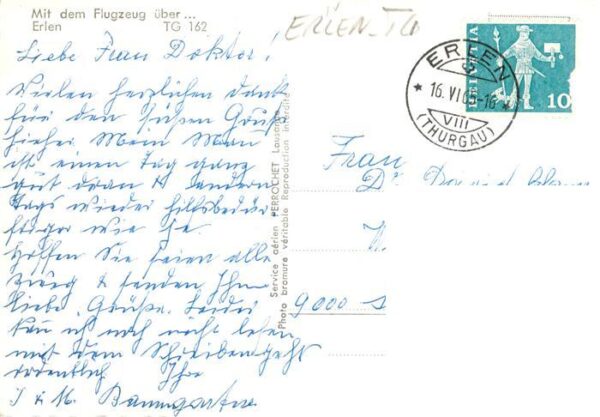 Mit dem Flugzeug über...
Erlen TG 162
ERLEN-TG
Liebe Frau Doktor!
Vielen herzlichen Dank
für den süßen Gruß
hieher. Mein Mann
ist einen Tag ganz
gut dran & andern
Tags wieder hilfsbedür
ftiger wie je.
Hoffen Sie seien alle
& senden Ihn
liebe Grüße. Leider
kan ich noch nicht
mit dem Schreiben geht
ordentlich Ihre
J & M. Baumgartner
Service aérien PERROCHET Lausanne
Photo bromure véritable Reproduction interdite
HELVETIA
10
ERLEN
16. VI 65-16
VIII
(THURGAU)
Frau
Dr
9000 S